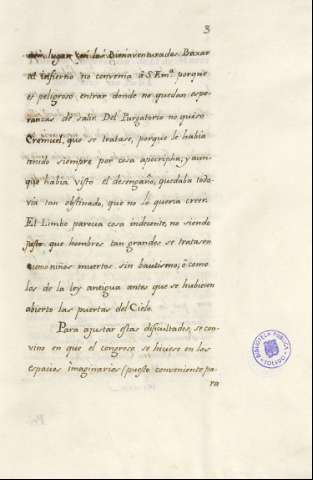 3
lugar con los Bienaventurados. Baxar
al infierno no convenia á S. Emª. porque
es peligroso entrar donde no quedan espe-
ranzas de salir. Del Purgatorio no quiso
Cremuel, que se tratase, porque le habia
tenido siempre por cosa apocripha; y aun-
que habia visto el desengaño, quedaba toda-
via tan obstinado, que no lo queria creer.
El Limbo parecia cosa indecente, no siendo
justo que hombres tan grandes se tratasen
como niños muertos sin bautismo, ó como
los de la ley antigua antes que se hubiesen
abierto las puertas del Cielo.
Para ajustar estas dificultades, se con-
vino en que el congreso se hiciese en los
espacios imaginarios (puesto conveniente pa-
ra
BIBLIOTECA PUBLICA
TOLEDO